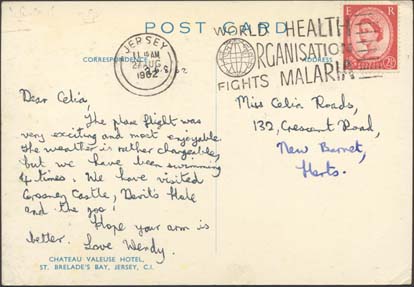 POST CARD
CORRESPONDENCE
ADDRESS
JERSEY
11 15 AM
27 AUG
1962
WORLD HEALTH
ORGANISATION
FIGHTS MALARIA
E R
2½D
Dear Celia,
The plane flight was
very exciting and most enjoyable.
The weather is rather changeable,
but we have been swimming
4 times. We have visited
Grosney Castle, Devil's Hole
and the zoo!
Hope your arm is
better. Love Wendy.
Miss Celia Roads,
132, Crescent Road,
New Barnet,
Herts.
CHATEAU VALEUSE HOTEL,
ST. BRELADE'S BAY, JERSEY, C.I.